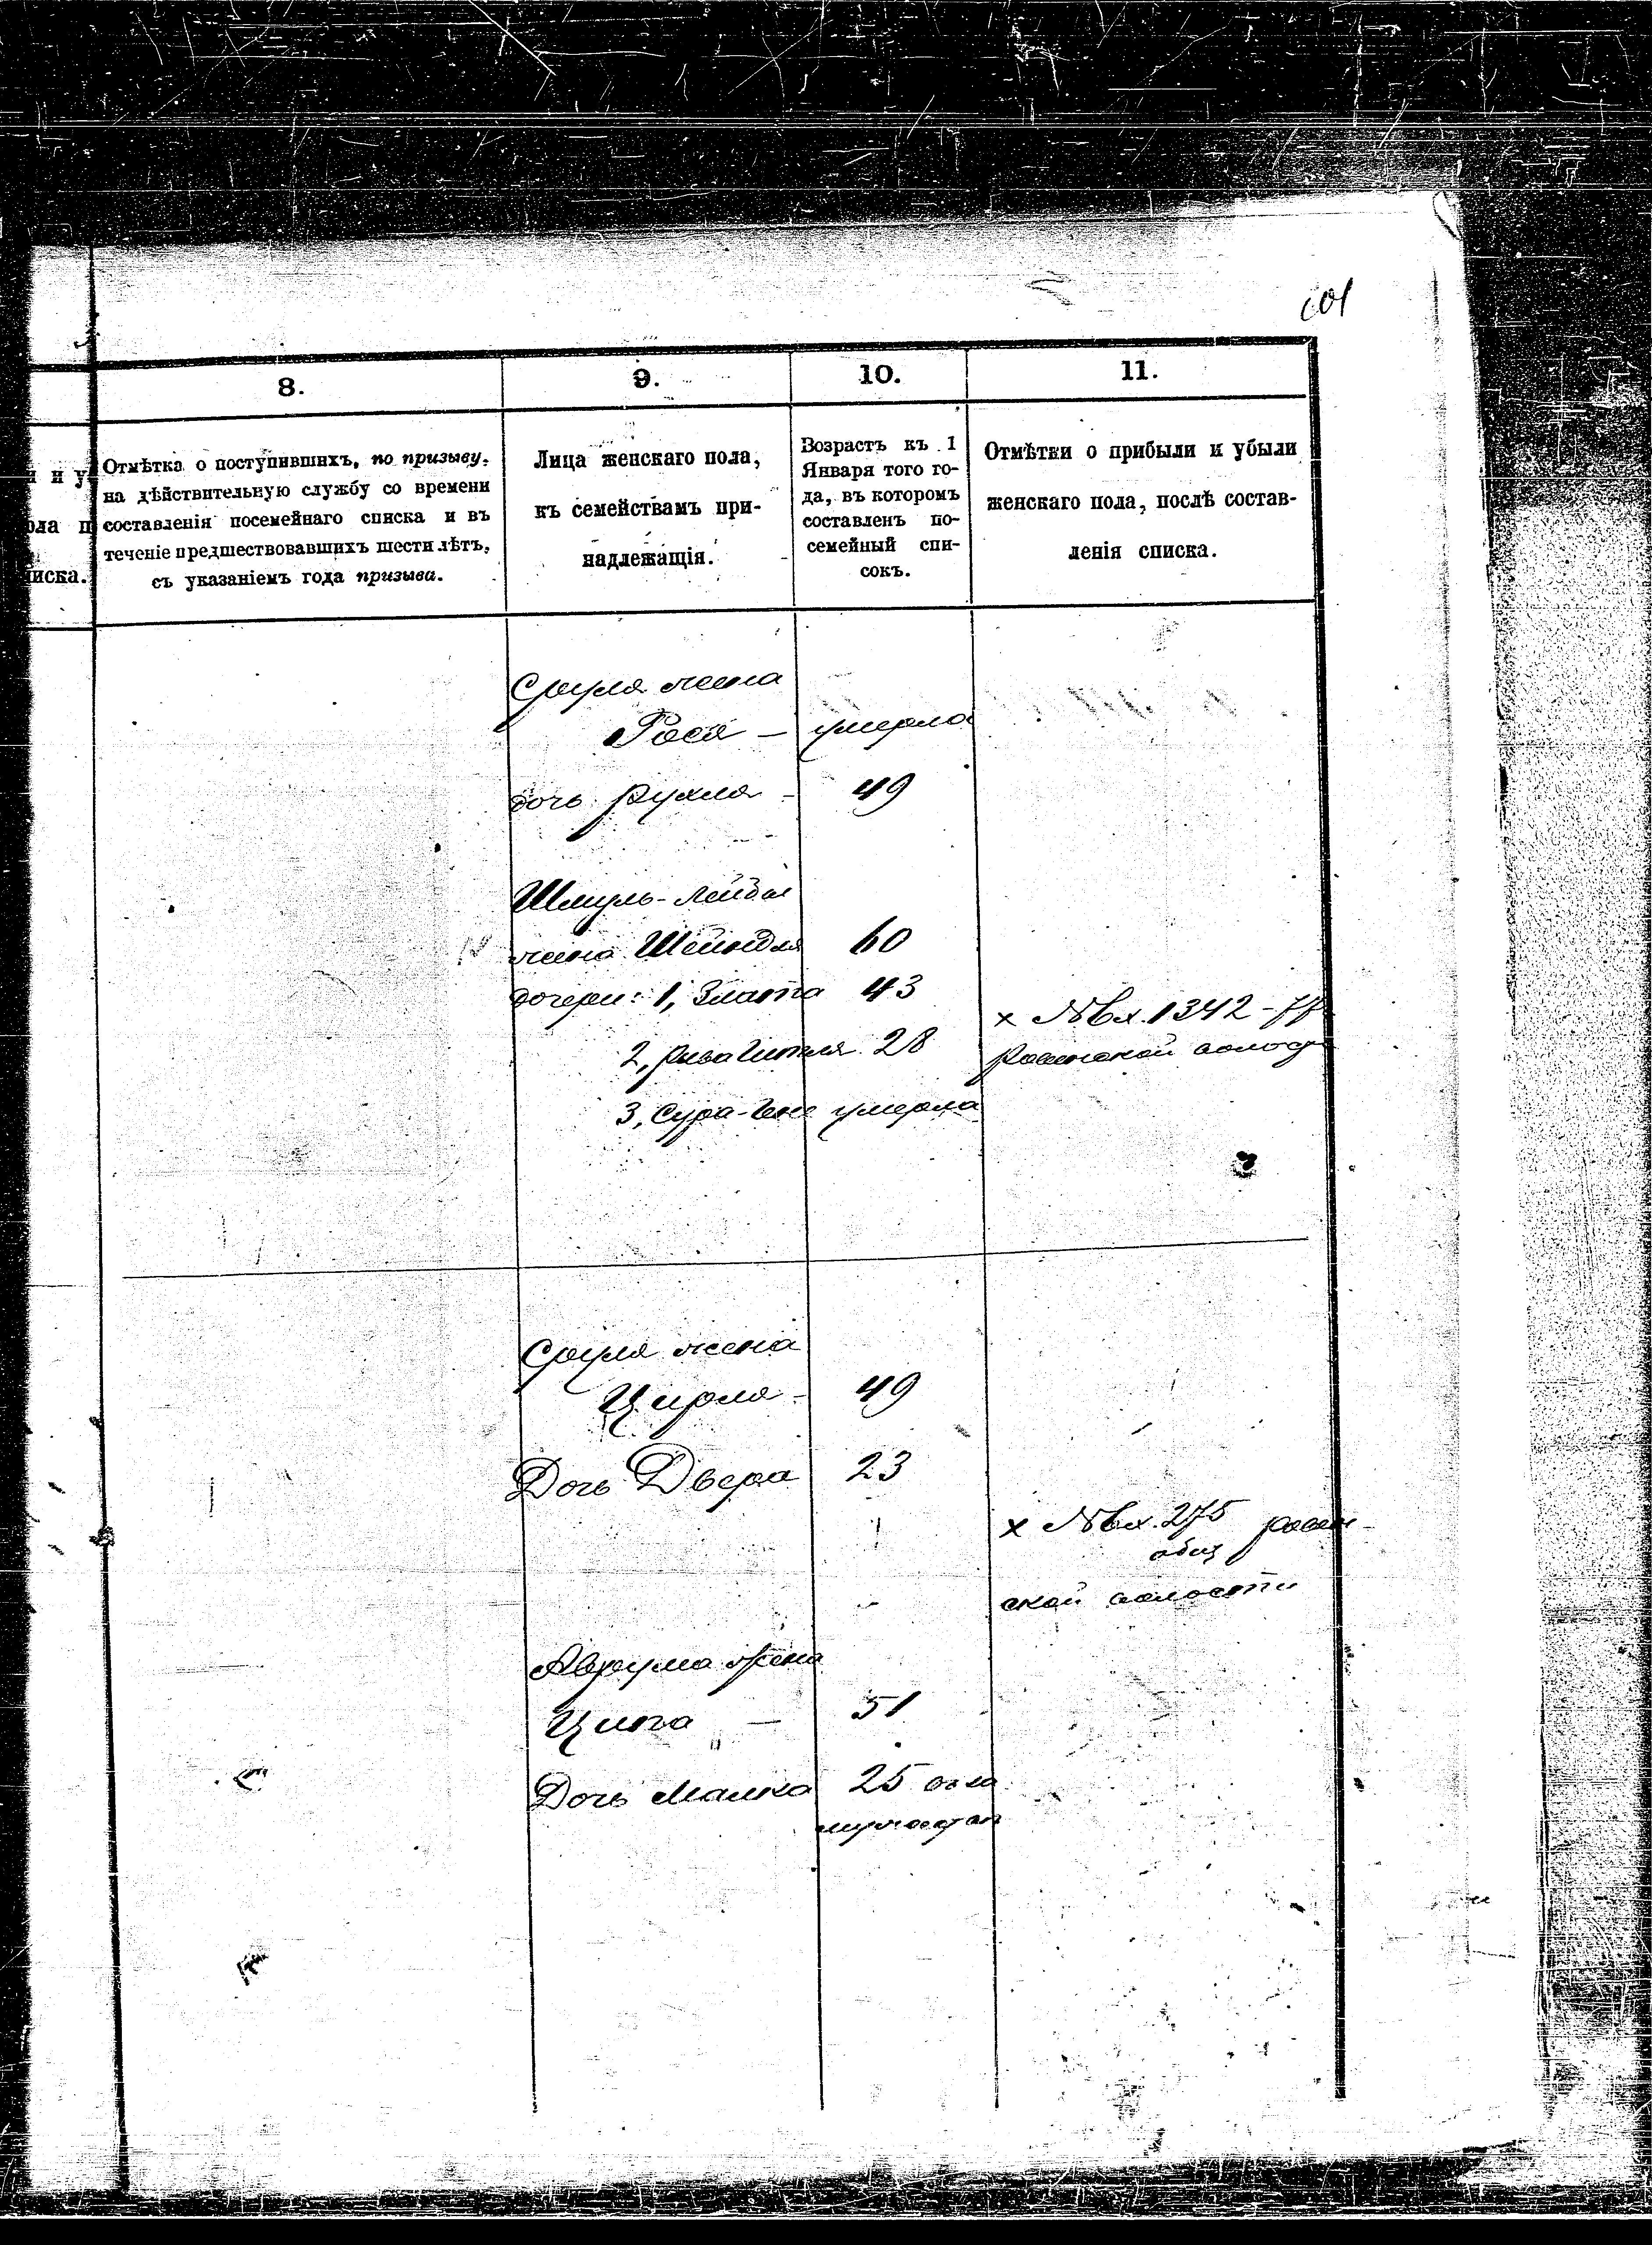 101
8.
9.
10.
11.
и у
ола п
писка.
Отмѣтка о поступившихъ, по призыву,
на дѣйствительную службу со времени
составленія посемейнаго списка и въ
теченіе предшествовавшихъ шести лѣтъ,
съ указаніемъ года призыва.
Лица женскаго пола,
къ семействамъ при-
надлежащія.
Возрастъ къ 1
Января того го-
да, въ которомъ
составленъ по-
семейный спи-
сокъ.
Отмѣтки о прибыли и убыли
женскаго пола, послѣ состав-
ленія списка.
Сруля жена
Рося - умерла
дочь Рухля - 49
Шмуль-Лейбы
жена Шейндля 60
дочери: 1, Злата 43
х №вх. 1342
2, Рива Гитля 28
3, Сура умерла
Сруля жена
Цирля - 49
Дочь Двера 23
х №вх. 275
ской волости
Аврума жена
Ципа — 51
Дочь Малка 25